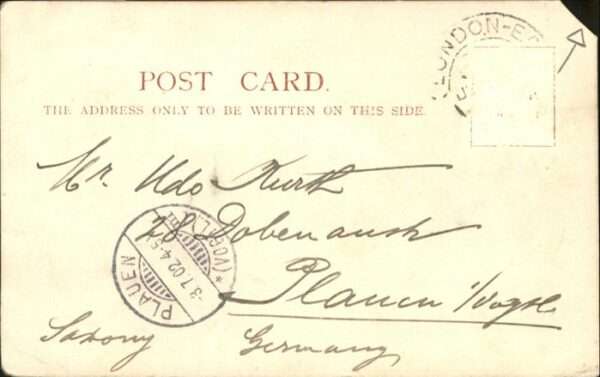 LONDON-E
POST CARD.
THE ADDRESS ONLY TO BE WRITTEN ON THIS SIDE.
Mr. Udo Kurth
28 Dobenaustr
Plauen i/Vogtl
PLAUEN
-3.7.02.4-5
* (VOGTL.)
Saxony Germany